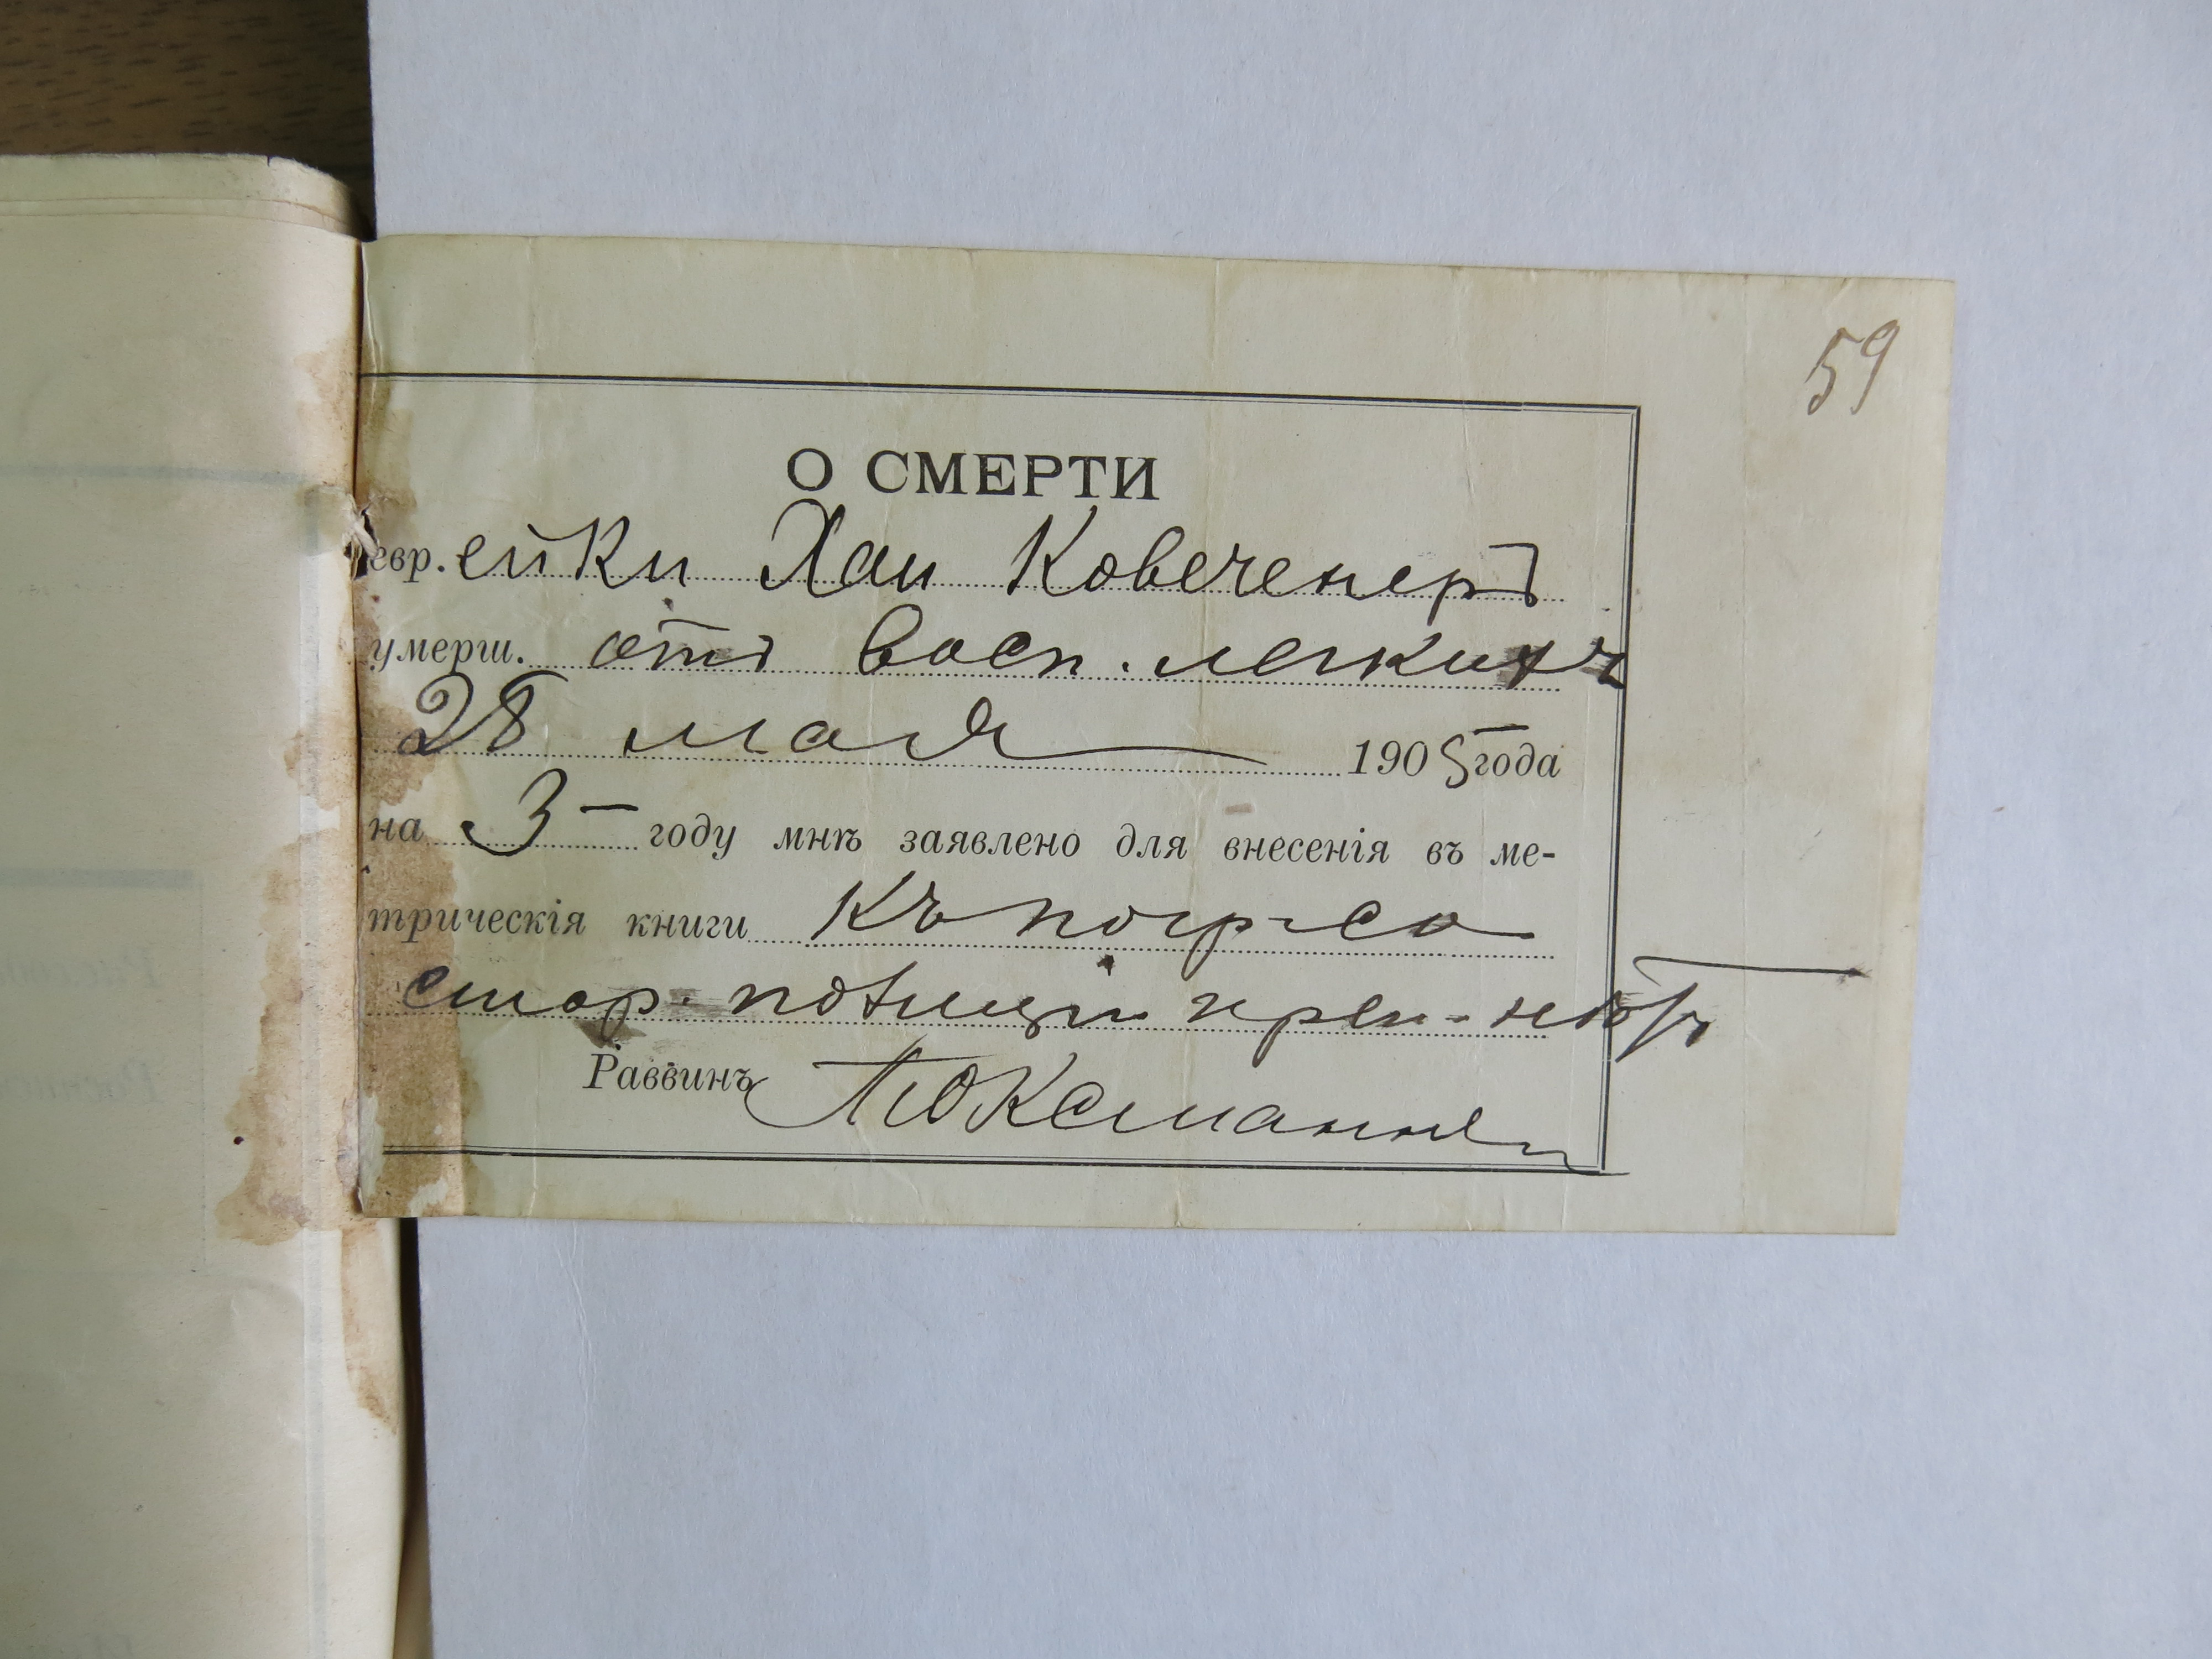 59
О СМЕРТИ
евр. ейки Хаи Ковеченеръ
умерш. отъ восп. легкихъ
28 мая 1905 года
на 3 году мнѣ заявлено для внесенія въ ме-
трическія книги къ погр. со
стор. полиціи преп. нѣтъ
Раввинъ